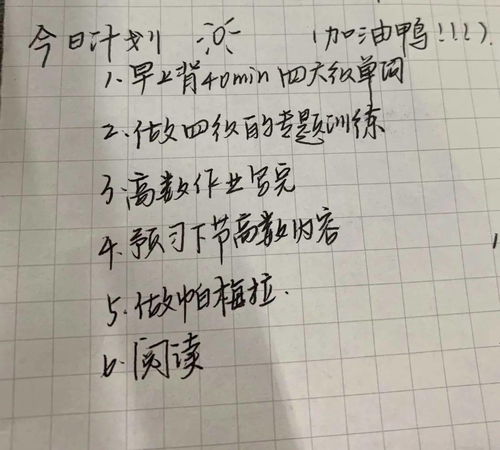 今日计划 (加油鸭!!!).
1.早上背40min 四六级单词
2.做四级的专题训练
3.高数作业写完
4.预习下节高数内容
5.做帕梅拉.
6.阅读